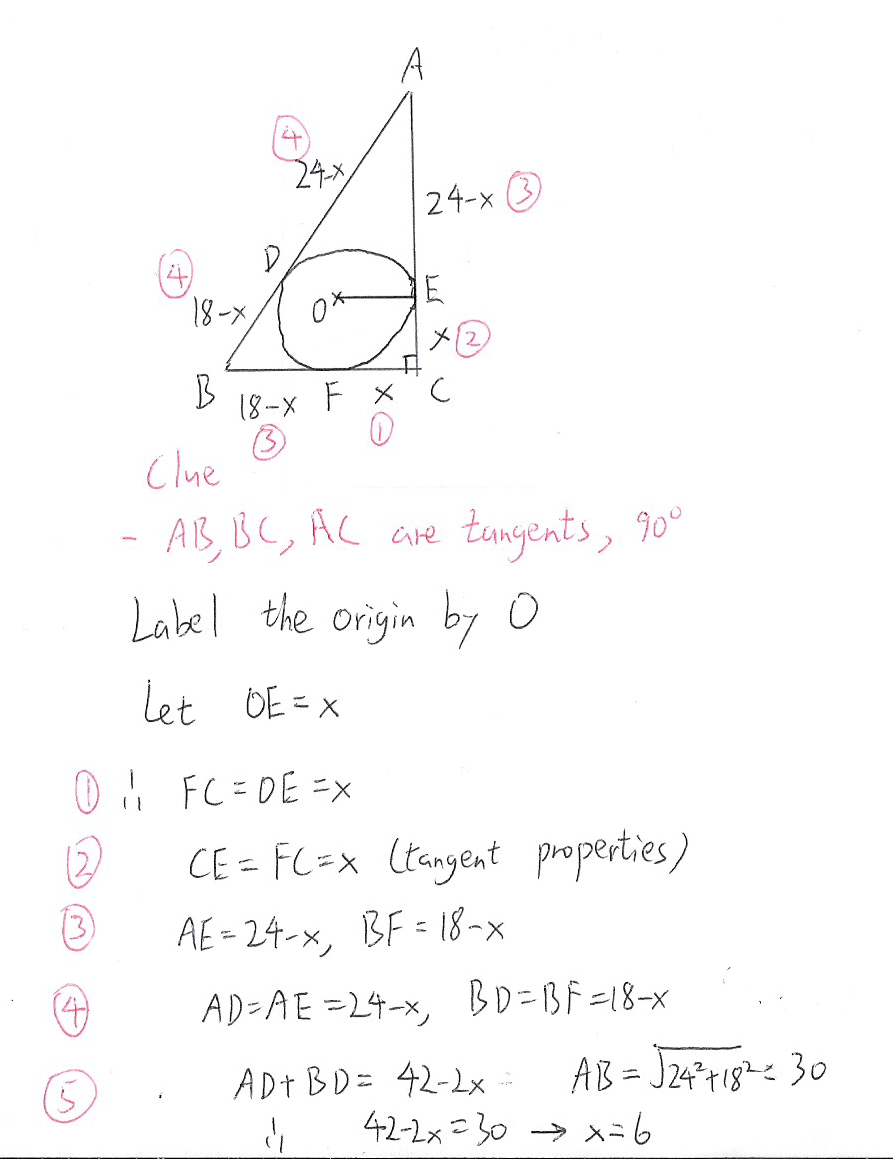 A
④
24-x
24-x ③
D
④
E
18-x
O
x ②
B
18-x
F
x
C
③
①
Clue
- AB, BC, AC are tangents, 90°
Label the origin by O
Let OE = x
① ∴ FC = OE = x
② CE = FC = x (tangent properties)
③ AE = 24-x, BF = 18-x
④ AD = AE = 24-x, BD = BF = 18-x
⑤ AD + BD = 42-2x AB = √24²+18² = 30
∴ 42-2x = 30 → x = 6